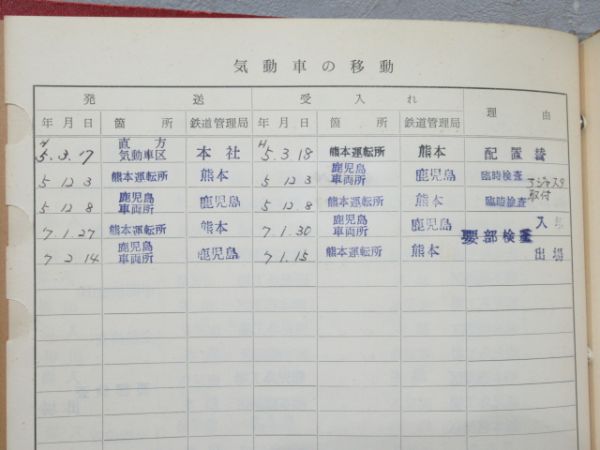 気動車の移動
発送 受入れ 理由
年月日 箇所 鉄道管理局 年月日 箇所 鉄道管理局
H5.3.17 直方気動車区 本社 H5.3.18 熊本運転所 熊本 配置替
5.12.3 熊本運転所 熊本 5.12.3 鹿児島車両所 鹿児島 臨時検査 アジャスタ取付
5.12.8 鹿児島車両所 鹿児島 5.12.8 熊本運転所 熊本 臨時検査
7.1.27 熊本運転所 熊本 7.1.30 鹿児島車両所 鹿児島 要部検査 入場
7.2.14 鹿児島車両所 鹿児島 7.1.15 熊本運転所 熊本 出場